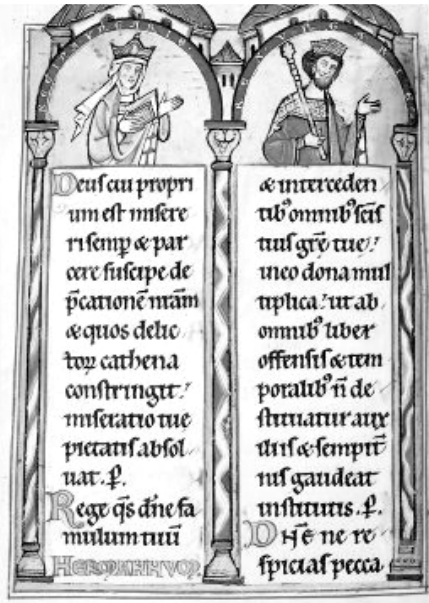 Deus cui propri
um est misere
ri semp̱ & par
cere suscipe de
p̄cationē nr̄am
& quos delic
toꝝ cathena
constringit:
miseratio tue
pietatis absol
uat. P̱.
Rege q̄s dn̄e fa
mulum tuū
& interceden
tibꝰ omnibꝰ scīs
tuis grē tue:
in eo dona mul
tiplica: ut ab
omnibꝰ liber
offensis & tem
poralibꝰ n̄ de
stituatur aux
iliis & sempit̄
nis gaudeat
institutis. P̱.
DNĒ ne re
spicias pecca